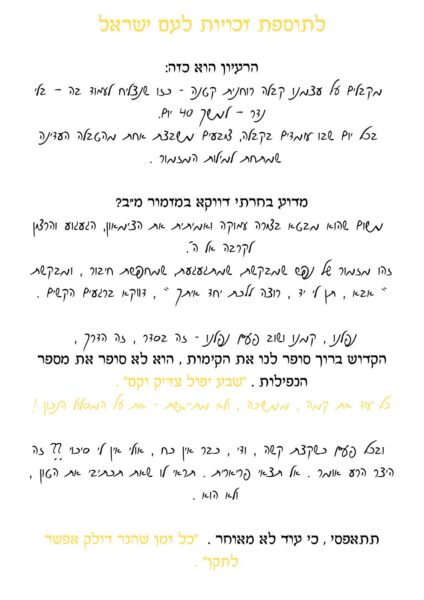 לתוספת זכויות לעם ישראל
הרעיון הוא כזה:
מקבלים על עצמנו קבלה רוחנית קטנה - כזו שנצליח לעמוד בה - בלי
נדר - למשך 40 יום.
בכל יום שבו עומדים בקבלה, צובעים משבצת אחת מהטבלה העדינה
שמתחת למילות המזמור .
מדוע בחרתי דווקא במזמור מ״ב?
משום שהוא מבטא בצורה עמוקה ואמיתית את הצימאון, הגעגוע והרצון
לקרבה אל ה׳.
זהו מזמור של נפש שמבקשת, שמתגעגעת, שמחפשת חיבור , ומבקשת
״ אבא , תן לי יד , רוצה ללכת יחד איתך ״ , דווקא ברגעים הקשים .
נפלנו , קמנו ושוב פעם נפלנו - זה בסדר , זה הדרך ,
הקדוש ברוך סופר לנו את הקימות , הוא לא סופר את מספר
הנפילות . "שבע יפול צדיק וקם" .
כל עוד את קמה , ממשיכה , ולא מתייאשת - את על המסלול הנכון !
ובכל פעם כשקצת קשה , ודי , כבר אין כח , אולי אין לי סיכוי ?? זה
היצר הרע אומר . אל תצאי פריארית . תראי לו שאת תכתיבי את הטון ,
ולא הוא .
תתאפסי , כי עוד לא מאוחר . "כל זמן שהנר דולק אפשר
לתקן" .